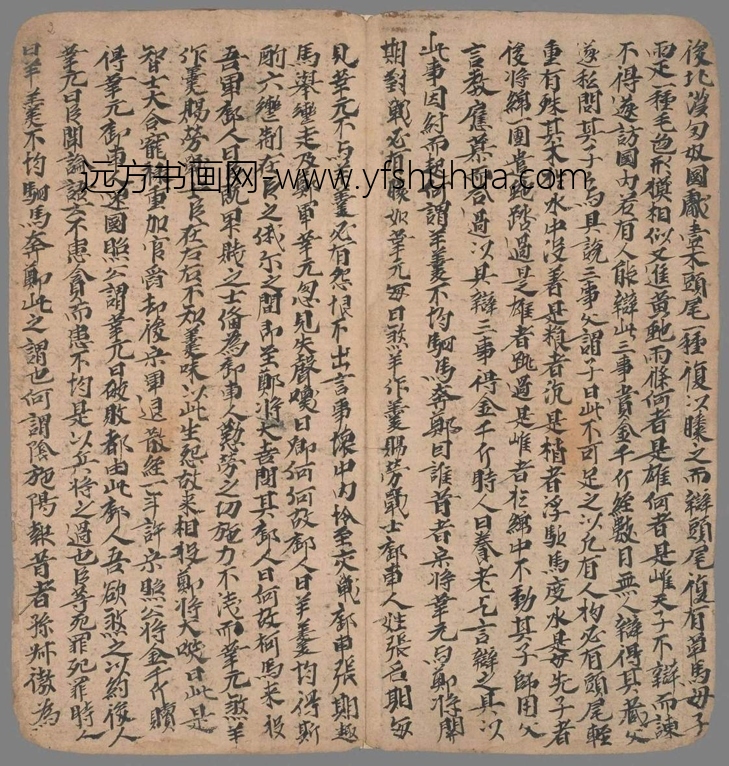 後北漢匈奴國獻壹木頭尾一種復以漆之而辯頭尾復有草馬母子
兩疋一種毛色形模相似又進黃虵兩條何者是雄何者是雌天子不辯而諫
不得遂訪國內若有人能辯此三事賞金千斤經數月無人辯得其藏父
遂私問其子子為具說三事父謂子曰此不可足之以凡有人构必有頭尾輕
重有殊其木水中沒著是根者沉是梢者浮駞馬度水是母先子者
後將綿一團虵踏過是雄者跳過是雌者於綿中不動其子師用父
言教應募答過以其辯三事得金千斤時人曰養老乞言辯之其以
此事因紂而起何謂羊羹不均駟馬奔鄭曰誰昔者宋將華元与鄭將開
期對戰必須勝如華元每日煞羊作羹賜勞戰士御車人姓張名期每
見華元不与羊羹必有怨恨不出言弟懷中內怜至交戰御車張期趣
馬舉轡走及鄭軍華元忽見失聲嘆曰卿何何故御人曰羊羹均得斯
酌六轡制在臣之俄尔之間即至鄭將大喜問其御人曰何故柯馬來投
吾軍御人曰既賎之士俻為御車人勤勞之切施力不淺而華元煞羊
作羹賜勞臣在左右不知羹味以此生怨故來相投鄭將大嘆曰此是
智士大合寵重加官爵却後宋軍退散經一年許宋照公將金千斤贖
得華元御車還國照公謂華元曰破敗都由此御人吾欲煞之以約後人
華元曰臣聞諺語云不患貧而患不均是以兵將之過也臣等死罪死罪時人
曰羊羹不均駟馬奔鄭此之謂也何謂陰施陽報昔者孫叔敖為
远方书画网-www.yfshuhua.com